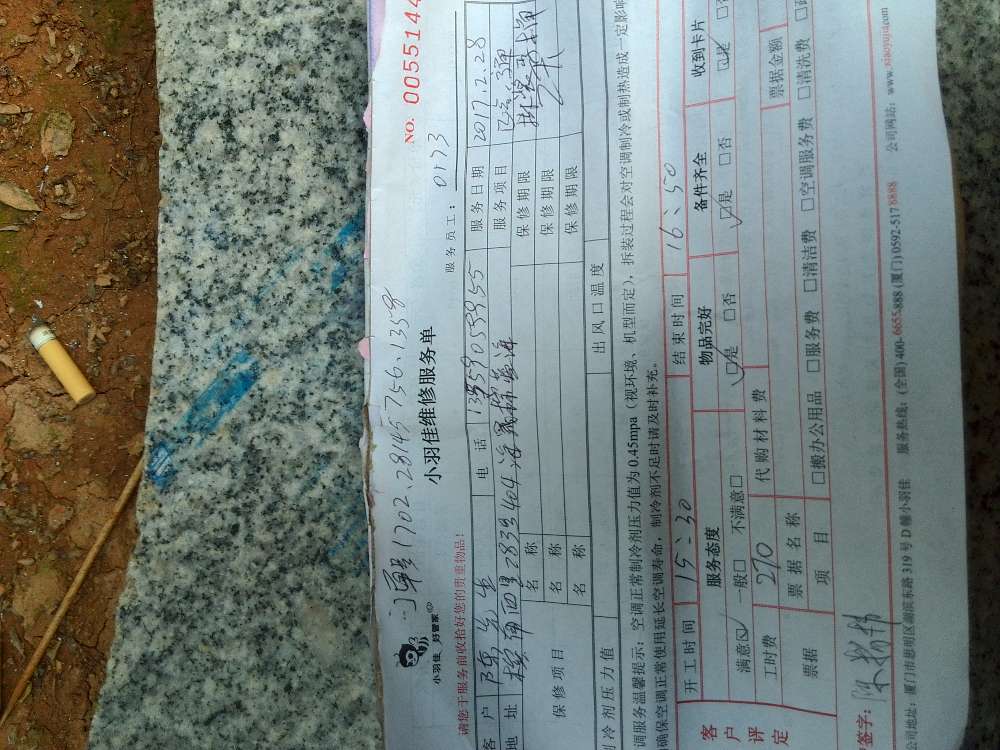 NO. 0055144
订单号1702.28145756.1358
小羽佳 好管家
小羽佳维修服务单
服务员工: 0173
请您于服务前收拾好您的贵重物品!
客户 陈先生 电话 13959055955 服务日期 2017.2.28
地址 2833 404 服务项目
保修项目 名称 保修期限
名称 保修期限
名称 保修期限
制冷剂压力值 出风口温度
调服务温馨提示: 空调正常制冷剂压力值为 0.45mpa (视环境、机型而定), 拆装过程会对空调制冷或制热造成一定影响
确保空调正常使用延长空调寿命, 制冷剂不足时请及时补充。
开工时间 15:30 结束时间 16:50
客户评定 服务态度 物品完好 备件齐全 收到卡片
满意☑ 一般□ 不满意□ ☑是 □否 ☑是 □否 ☑是 □否
工时费 270 代购材料费
票据 票据名称 票据金额
项目 □搬办公用品 □服务费 □清洁费 □空调服务费 □清洗费
签字:
公司地址: 厦门市思明区湖滨东路 319 号 D 幢小羽佳 服务热线: (全国)400-6655-888 (厦门)0592-5178888 公司网站: www.xiaoyujia.com